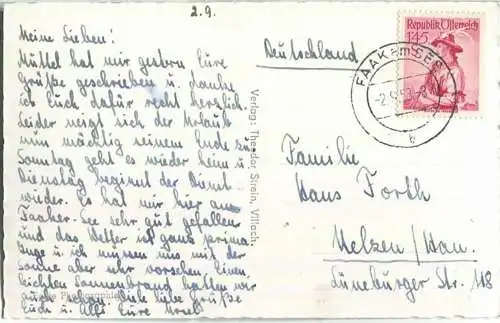 2.9.
Meine Lieben!
Muttel hat mir gestern Eure
Grüße geschrieben u. danke
ich Euch dafür recht herzlich.
Leider neigt sich der Urlaub
nun mächtig seinem Ende zu
Sonntag geht es wieder heim u.
Dienstag beginnt der Dienst
wieder. Es hat mir hier am
Faaker-See sehr gut gefallen
und das Wetter ist ganz prima.
Inge u. ich müssen uns mit der
Sonne aber sehr vorsehen. Einen
leichten Sonnenbrand hatten wir
schon. Viele liebe Grüße
Euch u. Alf. Eure Ursel
Verlag: Theodor Strein, Villach.
Deutschland
FAAK am SEE
Republik Österreich
1.45
Familie
Hans Forth
Uelzen/Han.
Lüneburger Str. 118